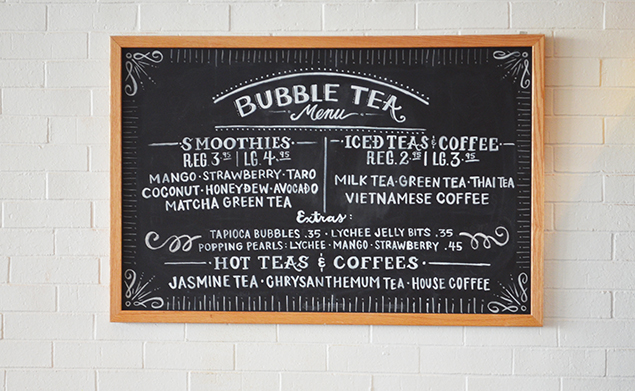 BUBBLE TEA
Menu
SMOOTHIES
REG. 3.95 | LG. 4.95
MANGO · STRAWBERRY · TARO
COCONUT · HONEYDEW · AVOCADO
MATCHA GREEN TEA
ICED TEAS & COFFEE
REG. 2.95 | LG. 3.95
MILK TEA · GREEN TEA · THAI TEA
VIETNAMESE COFFEE
Extras:
TAPIOCA BUBBLES .35 · LYCHEE JELLY BITS .35
POPPING PEARLS: LYCHEE · MANGO · STRAWBERRY .45
HOT TEAS & COFFEES
JASMINE TEA · CHRYSANTHEMUM TEA · HOUSE COFFEE